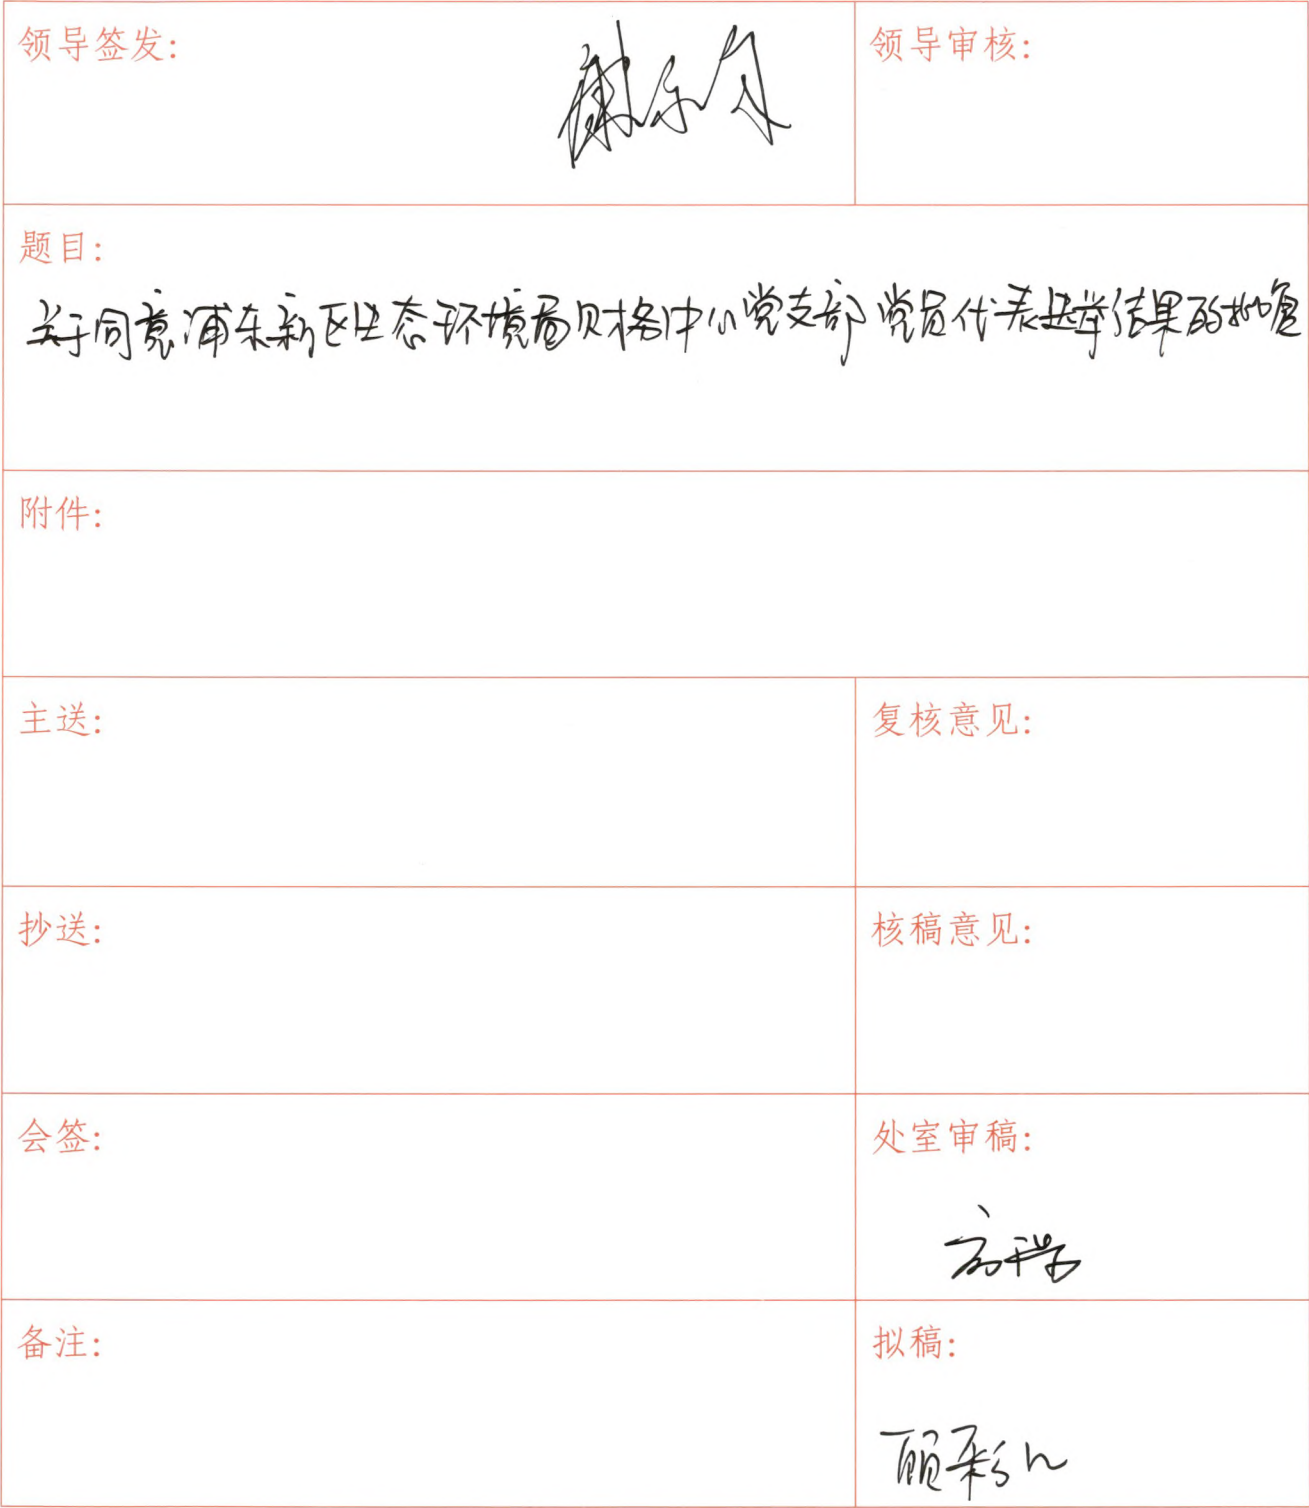 领导签发:
领导审核:
题目:
关于同意浦东新区生态环境局财格中心党支部党员代表选举结果的批复
附件:
主送:
复核意见:
抄送:
核稿意见:
会签:
处室审稿:
备注:
拟稿:
顾彩